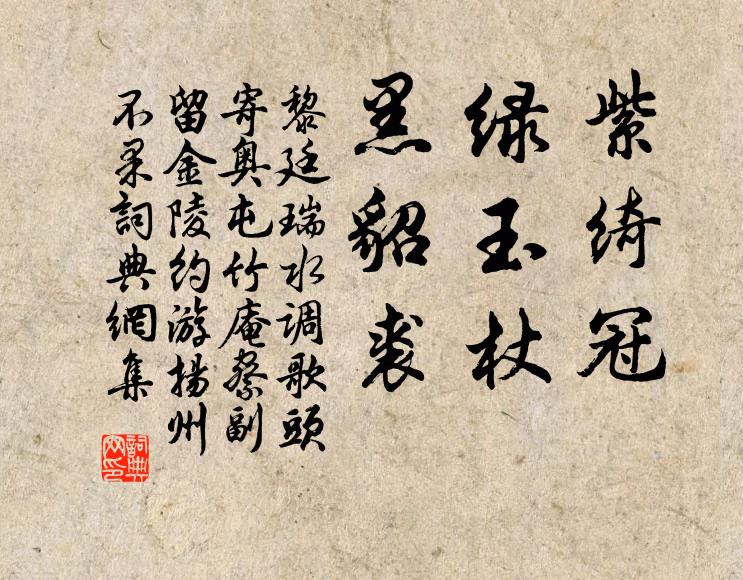 紫绮冠
绿玉杖
黑貂裘
黎廷瑞水调歌頭
寄奥屯竹庵察副
留金陵约游揚州
不果詞典網集
詞典網印